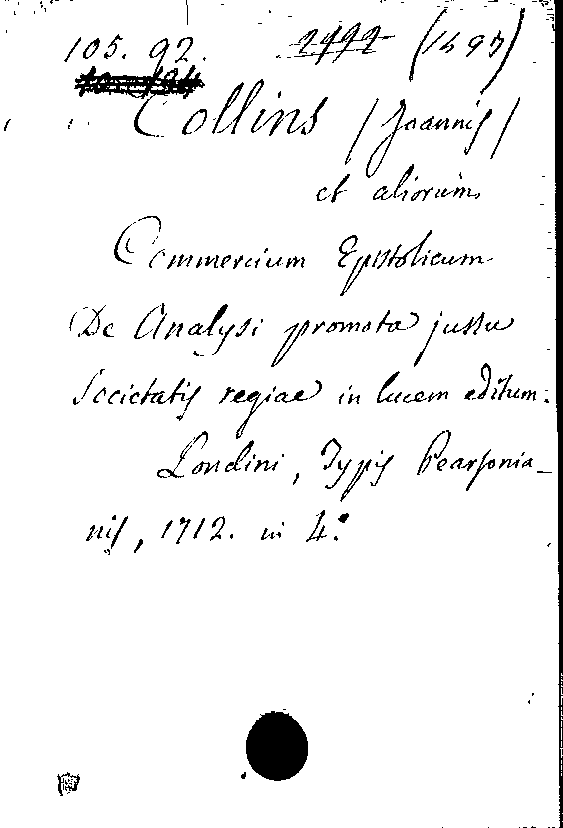 105. 92. (1497)
Collins /Joannis/
et aliorum
Commercium Epistolicum
De Analysi promota jussu
Societatis regiae in lucem editum.
Londini, Typis Pearsonia-
nis, 1712. in 4: